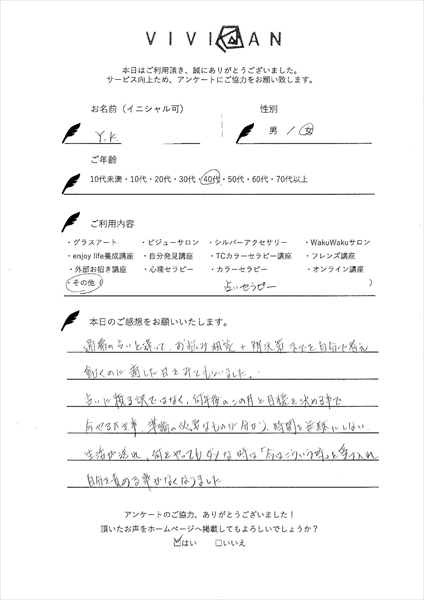 VIVIAN
本日はご利用頂き、誠にありがとうございました。
サービス向上ため、アンケートにご協力をお願い致します。
お名前（イニシャル可） 性別
Y.K 男 / 女
ご年齢
10代未満・10代・20代・30代・40代・50代・60代・70代以上
ご利用内容
・グラスアート ・ビジューサロン ・シルバーアクセサリー ・WakuWakuサロン
・enjoy life養成講座 ・自分発見講座 ・TCカラーセラピー講座 ・フレンズ講座
・外部お招き講座 ・心理セラピー ・カラーセラピー ・オンライン講座
・その他（ 占いセラピー ）
本日のご感想をお願いいたします。
通常の占いと違って、お悩み + 解決策までを自分で考え
動くのに適した日をみてもらいました。
占いに頼る訳ではなく、何年後のこの月と目標を決める事で
今やるべき事、準備の必要なものが分かり、時間を無駄にしない
生活が送れ、何をやってもダメな時は「今はこういう時」と受け入れ
自分を責める事がなくなりました
アンケートのご協力、ありがとうございました！
頂いたお声をホームページへ掲載してもよろしいでしょうか？
☑はい □いいえ